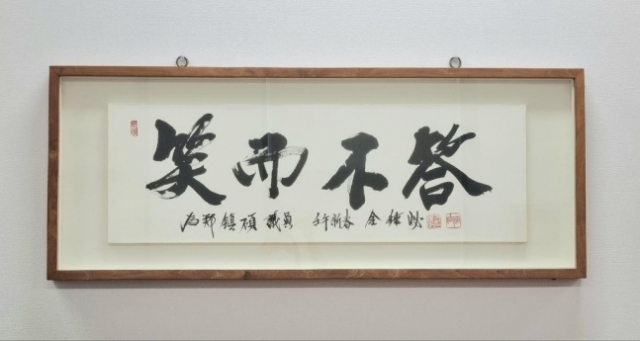 笑而不答
為鄭鎮碩 議員 壬午新春 金鍾泌